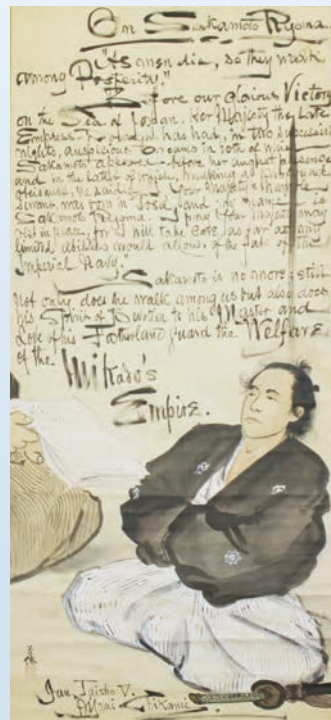 On Sakamoto Ryoma.
"As men die, so they walk
among Posterity."
Before our glorious Victory
on the Sea of Japan, Her Majesty the late
Empress has had, in two successive
nights, auspicious Dreams in both of which
Sakamoto appeared before her august presence
and in the latter of which, making a profound
obeisance, he said, "Your Majesty's humble
servant was born in Tosa, and the name is
Sakamoto Ryoma. I pray Your Majesty may
rest in peace, for I will take care as far as my
limited abilities would allow, of the fate of the
Imperial Navy."
Sakamoto is no more; still
not only does he walk among us but also does
his Spirit of Devotion to his Master and
Love of his Fatherland guard the Welfare
of the Mikado's
Empire.
Jan. Taisho V.